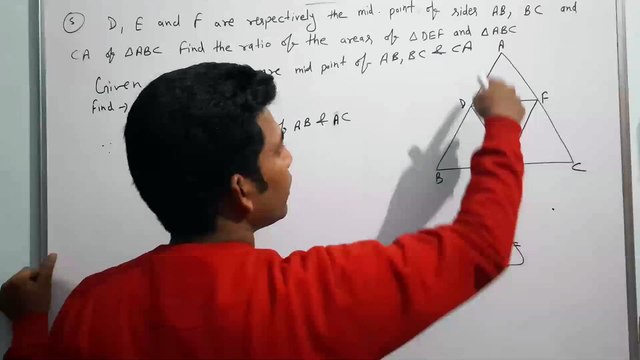 5 D, E and F are respectively the mid-point of sides AB, BC and
CA of △ABC Find the ratio of the areas of △DEF and △ABC
Given are mid point of AB, BC & CA
Find →
∵ of AB & AC
A
D F
B C